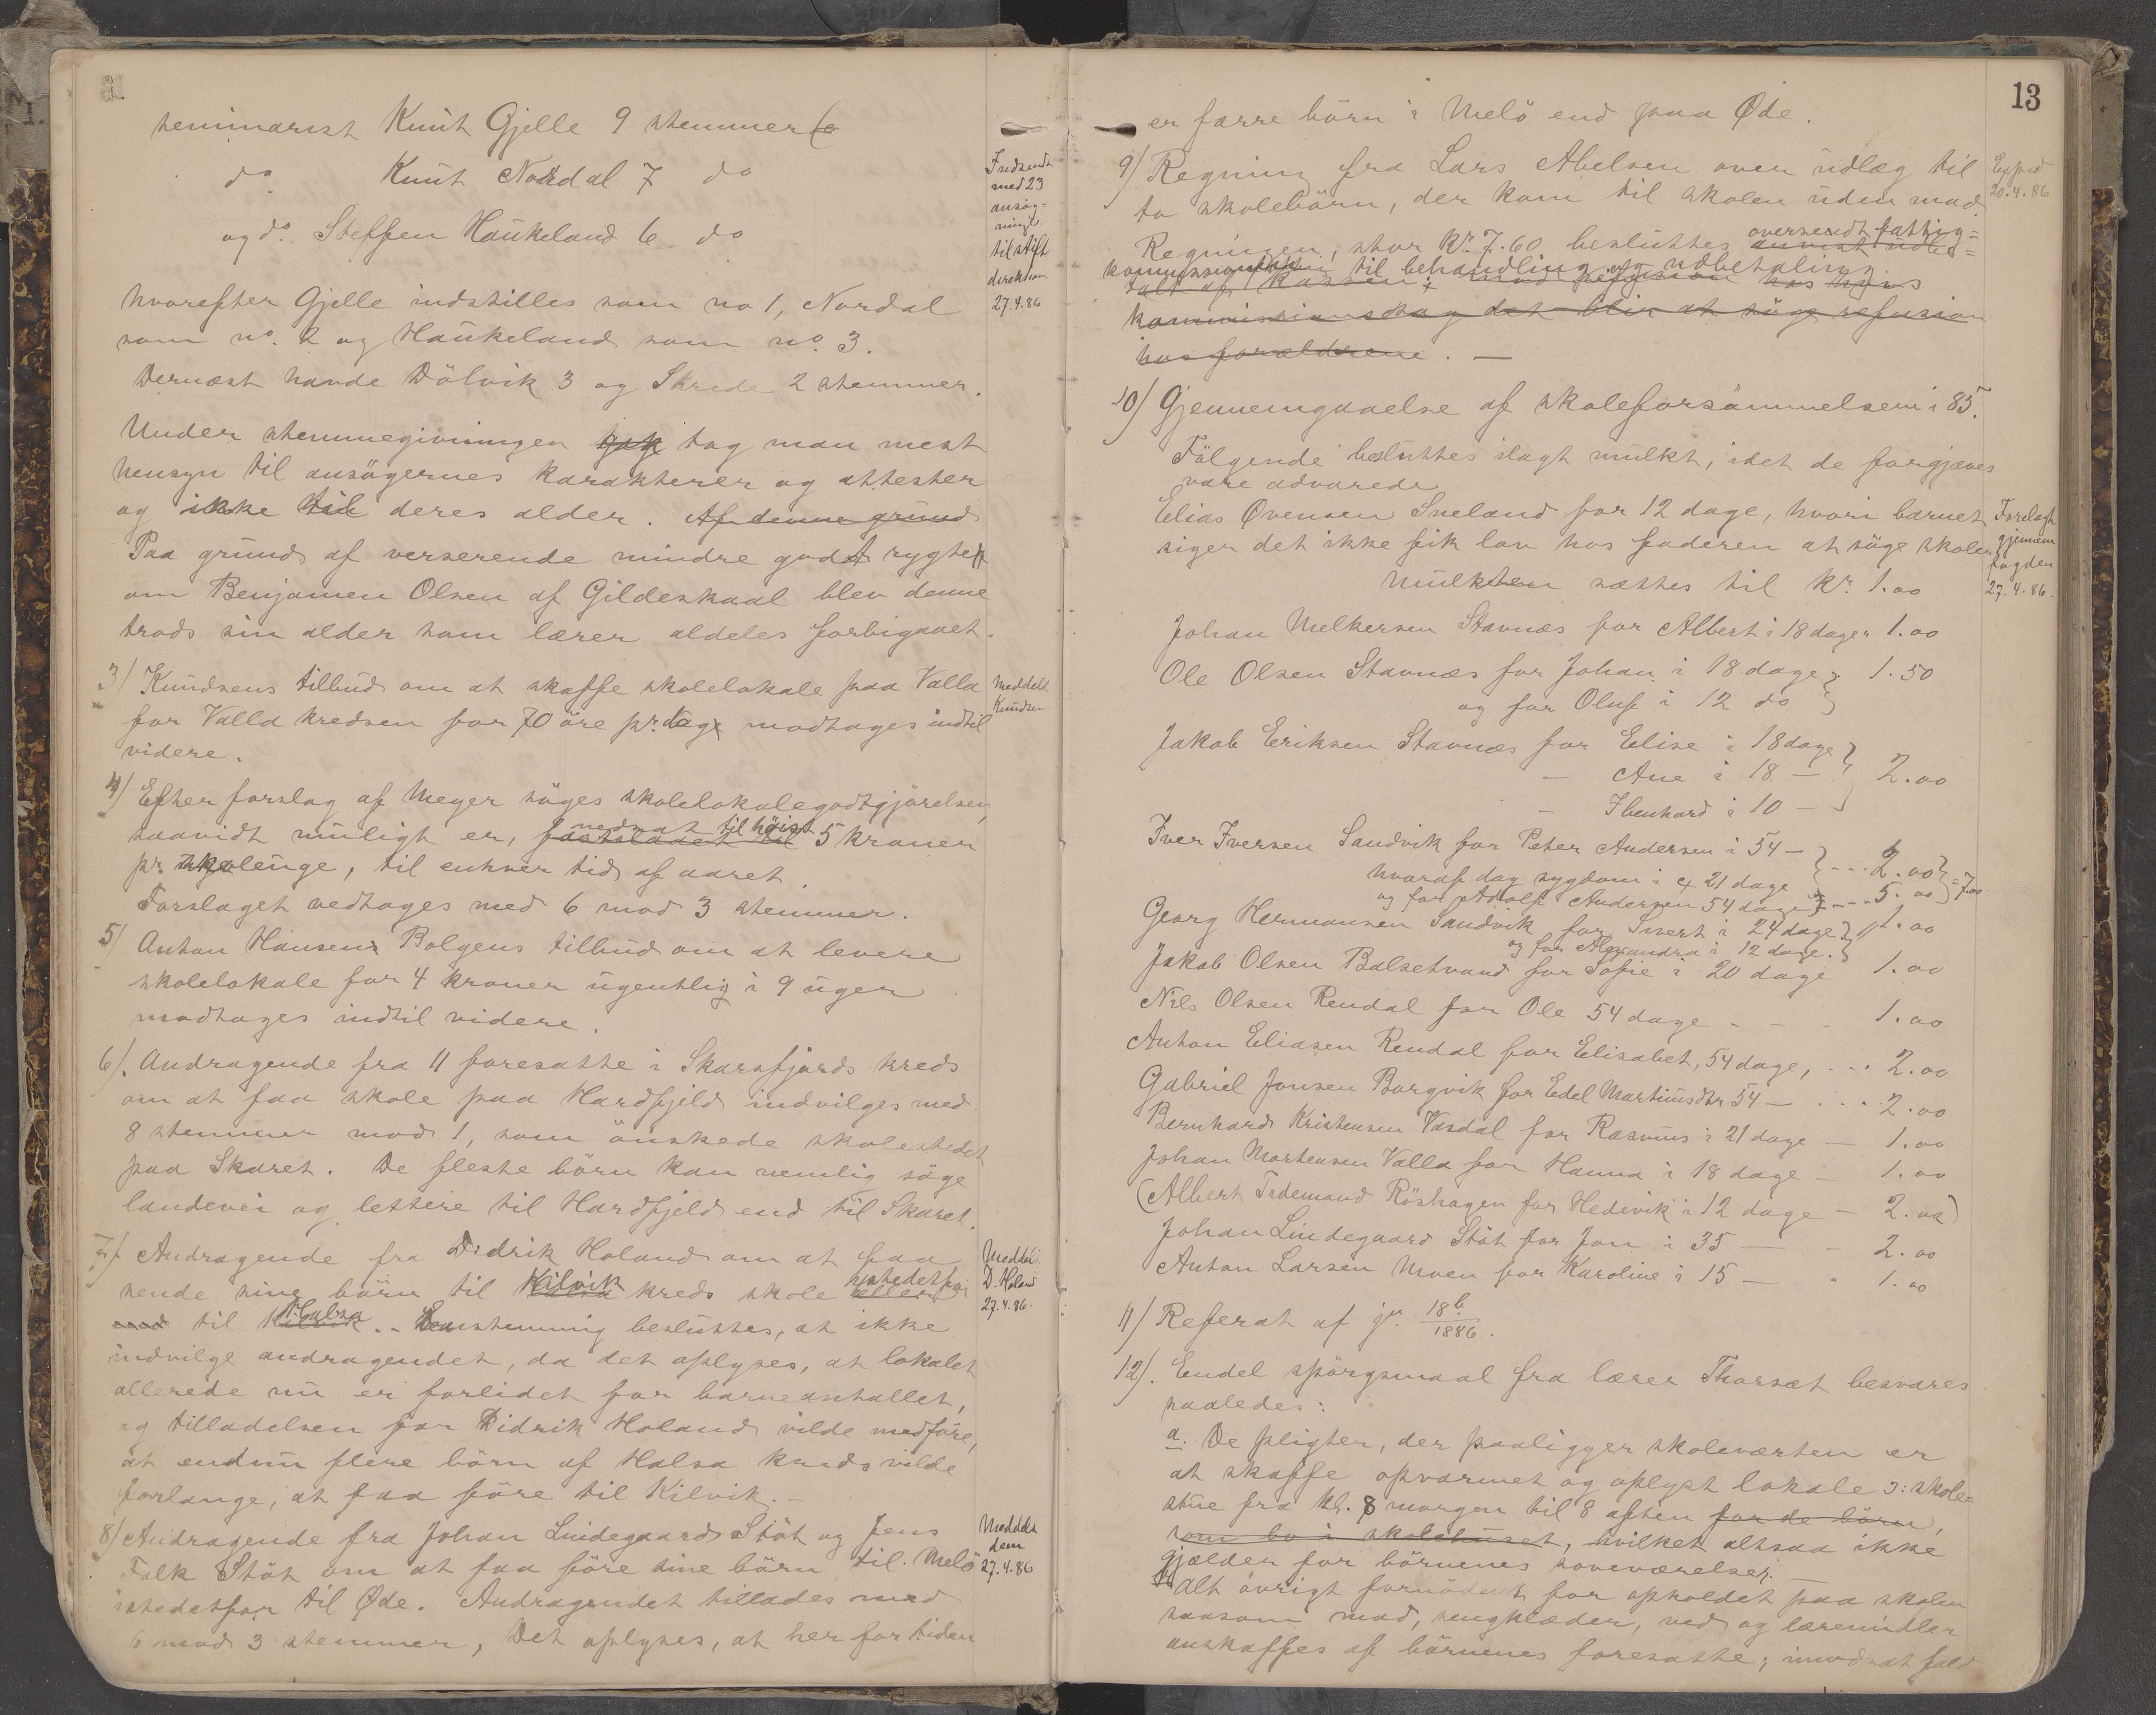 seminarist Knut Gjelle 9 stemmer
do Knut Nordal 7 do
og do. Steffen Haukeland 6 do
hvorefter Gjelle indstilles som no 1, Nordal
som no. 2 og Haukeland som no. 3.
Dernæst havde Dölvik 3 og Skrede 2 stemmer.
Under stemmegivningen tog man mest
hensyn til ansögernes karakterer og attester
og ikke til deres alder. Af denne grund
Paa grund af verserende mindre godt rygte
om Benjamen Olsen af Gildeskaal blev denne
trods sin alder som lærer aldeles forbigaaet.
Indsendt
med 23
ansög-
ninger
til stift
direktion
27.4.86
3) Knudsens tilbud om at skaffe skolelokale paa Valla
for Valla kredsen for 70 öre pr. dag modtages indtil
videre.
Meddelt
Knudsen
4) Efter forslag af Meyer söges skolelokalegodtgjörelsen,
saavidt muligt er, nedsat til höist 5 kroner
pr. uge, til enhver tid af aaret.
Forslaget vedtages med 6 mod 3 stemmer.
5) Anton Hansens Bolgens tilbud om at levere
skolelokale for 4 kroner ugentlig i 9 uger
modtages indtil videre.
6). Andragende fra 11 foresatte i Skarsfjords kreds
om at faa skole paa Hardfjeld indvilges med
8 stemmer mod 1, som önskede skolestedet
paa Skaret. De fleste börn kan nemlig söge
landevei og lettere til Hardfjeld end til Skaret.
7) Andragende fra Didrik Holand om at faa
sende sine börn til Kilvik kreds skole istedetfor
til Halsa. Enstemmig besluttes, at ikke
indvilge andragendet, da det oplyses, at lokalet
allerede nu er forlidet for barneantallet,
og tilladelsen for Didrik Holand vilde medföre,
at endnu flere börn af Halsa kreds vilde
forlange, at faa före til Kilvik.
Meddelt
D. Holand
27.4.86.
8) Andragende fra Johan Lindegaard Stöt og Jens
Falk Stöt om at faa före sine börn til Melö
istedetfor til Øde. Andragendet tillades med
6 mod 3 stemmer, Det oplyses, at her for tiden
Meddelt
dem
27.4.86
13
er færre börn i Melö end paa Øde.
9) Regning fra Lars Abelsen over udlæg til
to skolebörn, der kom til skolen uden mad.
Regningen, stor Kr. 7.60 besluttes oversendt fattig=
kommissionen til behandling og udbetaling.
talt af kassen, mod refusion hos
kommission og det blir at söge refusion
hos forældrene. —
Exped
20.4.86
10) Gjennemgaaelse af skoleforsömmelsem i 85.
Fölgende besluttes ilagt mulkt, idet de forgjæves
vare advarede
Elias Ovensen Sneland for 12 dage, hvori barnet
siger det ikke fik lov hos faderen at söge skolen
mulkten sættes til Kr. 1.00
Forelagt
gjennem
fogden
27.4.86.
Johan Melkersen Stavnæs for Albert i 18 dage 1.00
Ole Olsen Stavnæs for Johan i 18 dage } 1.50
og for Oluf i 12 do }
Jakob Eriksen Stavnæs for Elise i 18 dage }
— Ane i 18 — } 2.00
— Ibenhard i 10 — }
Iver Iversen Sandvik for Peter Andersen i 54 — } --- 2.00
hvoraf dog sygdom i 21 dage
og for Adolf Andersen 54 dage ---- 5.00 } = 7.00
Georg Hermansen Sandvik for Sivert i 24 dage } 1.00
og for Alexandra i 12 dage. }
Jakob Olsen Balsetvand for Sofie i 20 dage 1.00
Nils Olsen Rendal for Ole 54 dage - - - 1.00
Anton Eliasen Rendal for Elisabet, 54 dage, ... 2.00
Gabriel Jonsen Borgvik for Edel Martinsdtr 54 — .... 2.00
Bernhard Kristensen Væsdal for Rasmus i 21 dage — 1.00
Johan Mortensen Valla for Hanna i 18 dage — 1.00
(Albert Tidemand Röshagen for Hedevik i 12 dage — 2.00)
Johan Lindegaard Stöt for Jon i 35 — - 2.00
Anton Larsen Moen for Karoline i 15 — " 1.00
11) Referat af 18 6/1886.
12). Endel spörgsmaal fra lærer Thorsæt besvares
saaledes:
a. De pligter, der paaligger skoleværten er
at skaffe opvarmet og oplyst lokale ɔ: skole=
stue fra kl. 8 morgen til 8 aften for de börn,
som bo i skolehuset, hvilket altsaa ikke
gjælder for börnenes soveværelser.
b) Alt övrigt fornödent for opholdet paa skolen
saasom mad, sengklæder, ved og læremidler
anskaffes af börnenes foresatte; imodsat fald